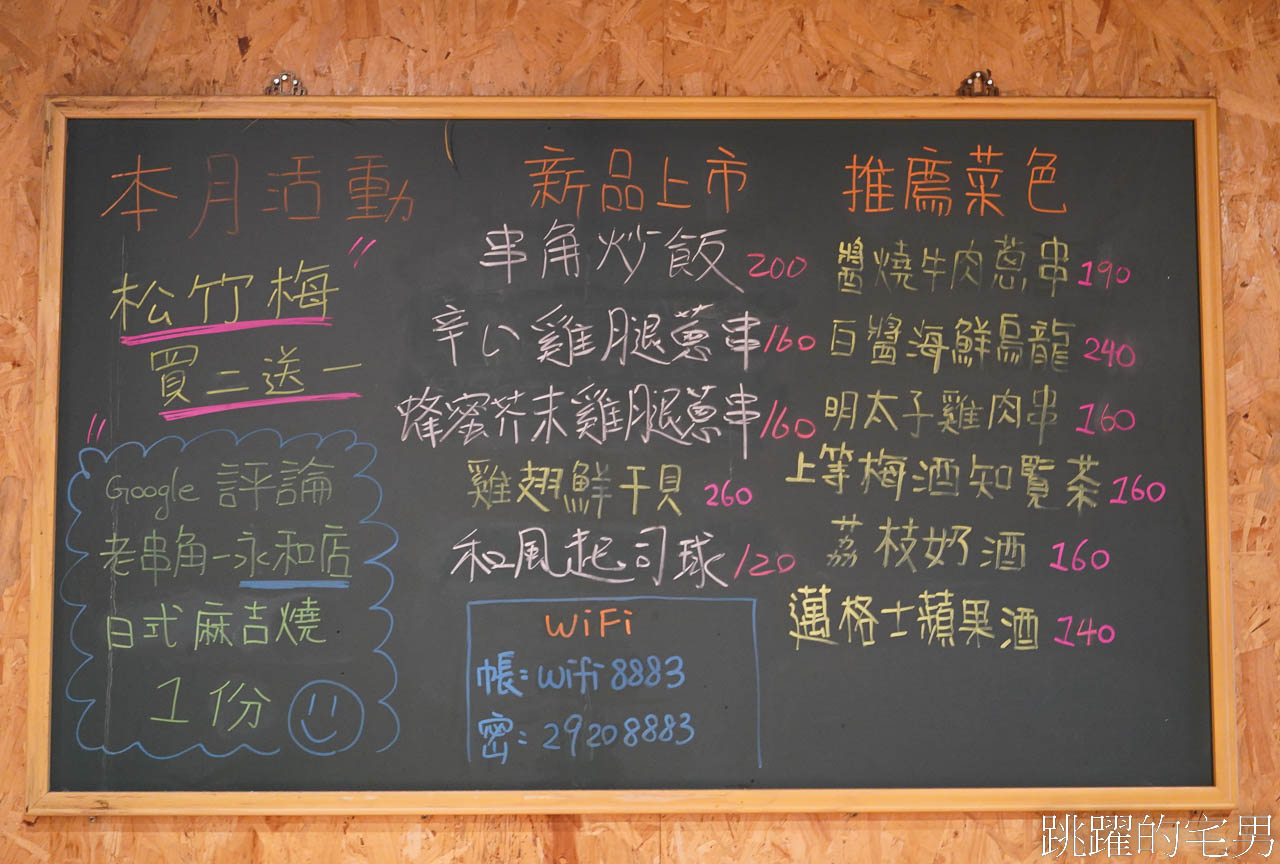 本月活動
松竹梅
買二送一
Google 評論
老串角-永和店
日式麻吉燒
1份
新品上市
串角炒飯 200
辛い雞腿蔥串 160
蜂蜜芥末雞腿蔥串 160
雞翅鮮干貝 260
和風起司球 120
WiFi
帳:wifi8883
密:29208883
推薦菜色
醬燒牛肉蔥串 190
白醬海鮮烏龍 240
明太子雞肉串 160
上等梅酒知覧茶 160
荔枝奶酒 160
邁格士蘋果酒 140
跳躍的宅男